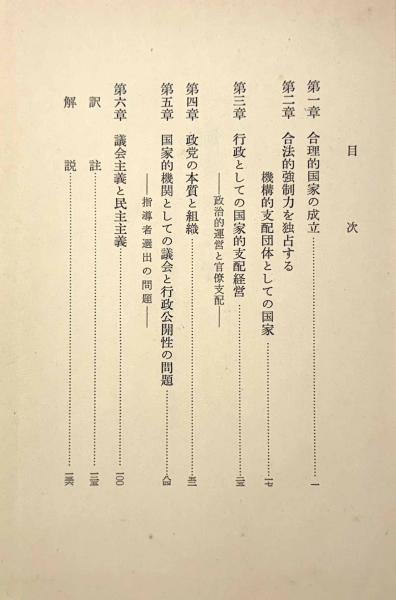 目次
第一章 合理的国家の成立……一
第二章 合法的強制力を独占する
機構的支配団体としての国家……一七
第三章 行政としての国家的支配経営……二三
――政治的運営と官僚支配――
第四章 政党の本質と組織……五二
第五章 国家的機関としての議会と行政公開性の問題……八四
――指導者選出の問題――
第六章 議会主義と民主主義……一〇〇
訳註……
解説……